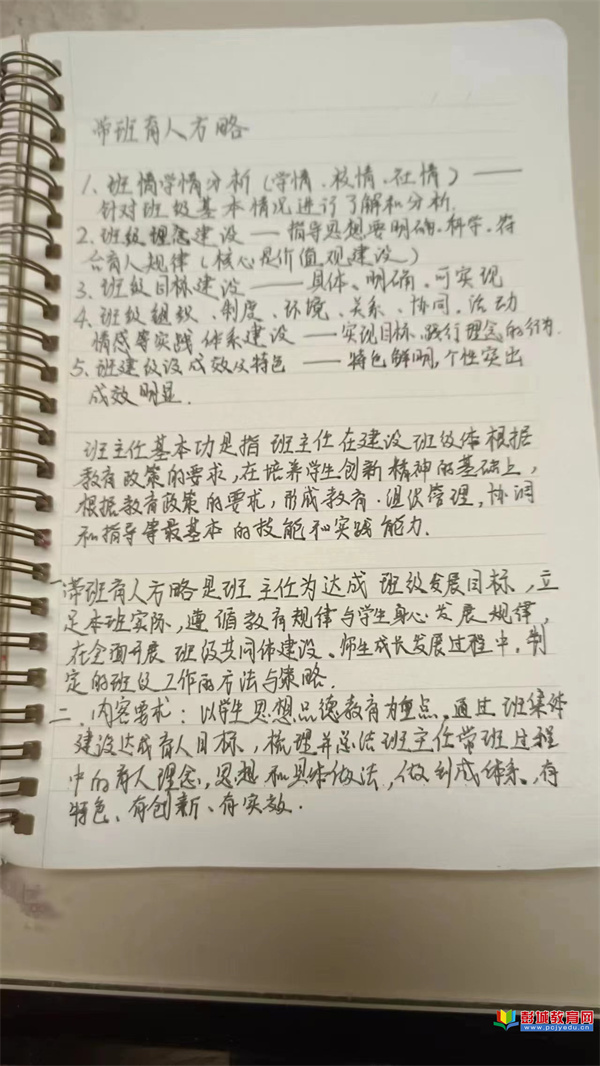 带班育人方略
1、班情学情分析（学情、校情、社情）——
针对班级基本情况进行了解和分析.
2、班级理念建设——指导思想要明确、科学、符
合育人规律（核心是价值观建设）
3、班级目标建设——具体、明确、可实现
4、班级组织、制度、环境、关系、协同、活动
情感等实践体系建设——实现目标、践行理念的行为.
5、班建设成效及特色——特色鲜明,个性突出
成效明显.
班主任基本功是指班主任在建设班级体根据
教育政策的要求,在培养学生创新精神的基础上,
根据教育政策的要求,形成教育、组织管理,协调
和指导等最基本的技能和实践能力.
带班育人方略是班主任为达成班级发展目标,立
足本班实际,遵循教育规律与学生身心发展规律,
在全面开展班级共同体建设、师生成长发展过程中,制
定的班级工作的方法与策略.
二、内容要求：以学生思想品德教育为重点,通过班集体
建设达成育人目标,梳理并总结班主任带班过程
中的育人理念,思想和具体做法,做到成体系、有
特色、有创新、有实效.
彭城教育网
www.pcjyedu.cn